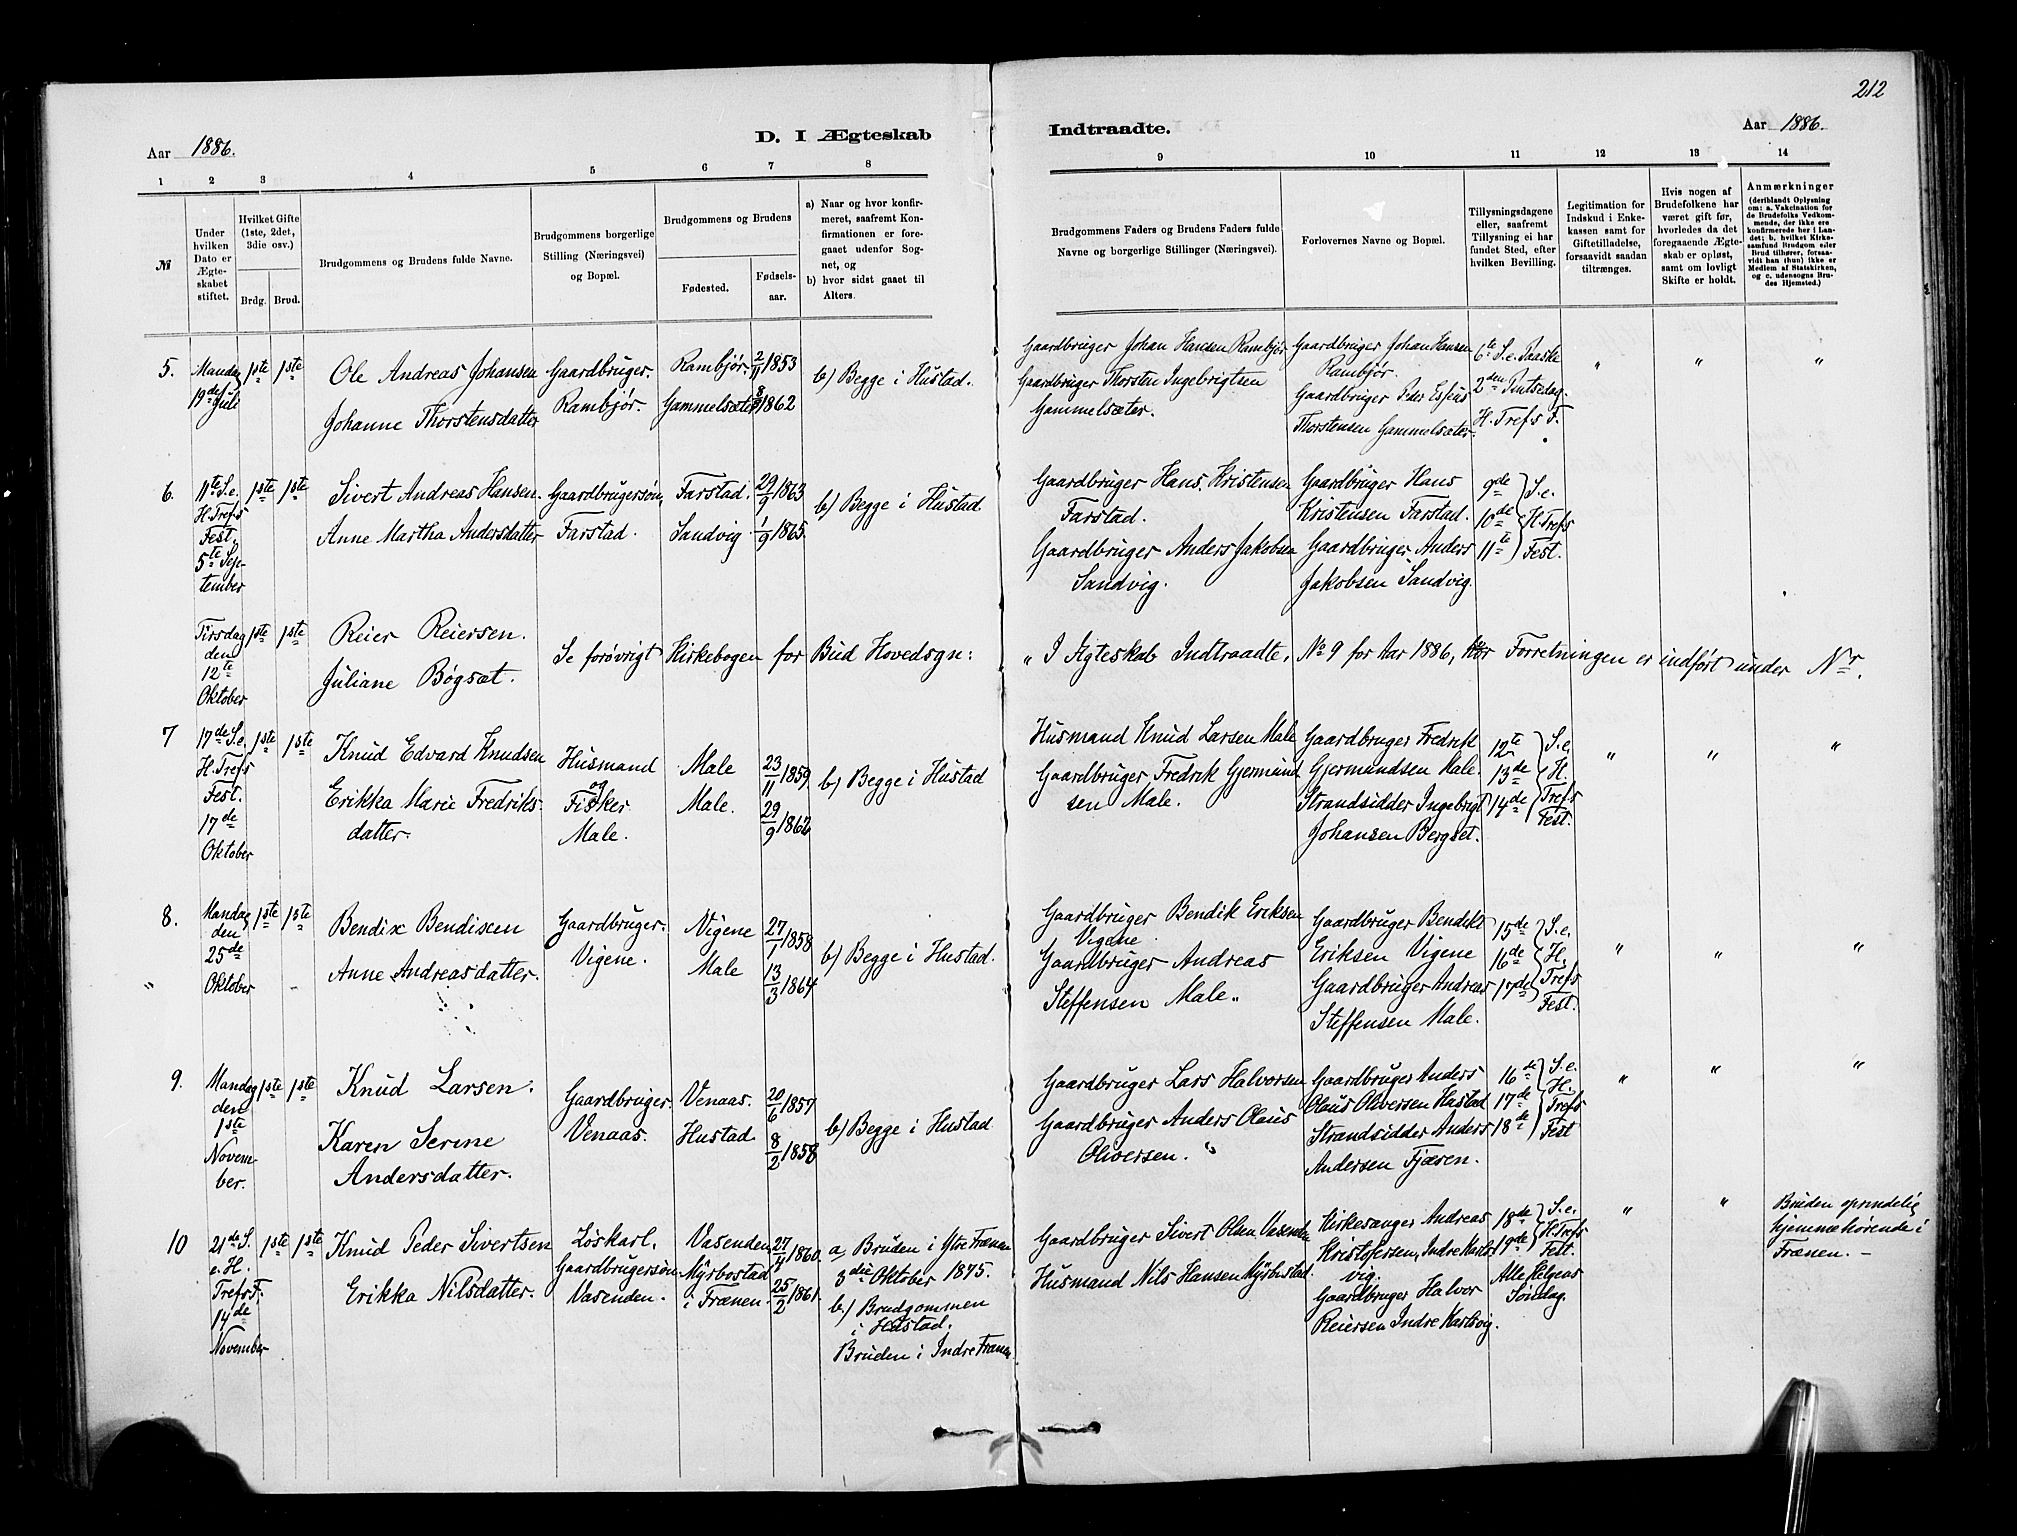 212
Aar 1886.
D. I Ægteskab
Indtraadte.
Aar 1886.
1 2 3 4 5 6 7 8 9 10 11 12 13 14
№
Under hvilken Dato er Ægteskabet stiftet.
Hvilket Gifte (1ste, 2det, 3die osv.)
Brdg. Brud.
Brudgommens og Brudens fulde Navne.
Brudgommens borgerlige Stilling (Næringsvei) og Bopæl.
Brudgommens og Brudens
Fødested.
Fødselsaar.
a) Naar og hvor konfirmeret, saafremt Konfirmationen er foregaaet udenfor Sognet, og
b) hvor sidst gaaet til Alters.
Brudgommens Faders og Brudens Faders fulde Navne og borgerlige Stillinger (Næringsvei).
Forlovernes Navne og Bopæl.
Tillysningsdagene eller, saafremt Tillysning ei har fundet Sted, efter hvilken Bevilling.
Legitimation for Indskud i Enkekassen samt for Giftetilladelse, forsaavidt saadan tiltrænges.
Hvis nogen af Brudefolkene har været gift før, hvorledes da det foregaaende Ægteskab er opløst, samt om lovligt Skifte er holdt.
Anmærkninger (deriblandt Oplysning om: a. Vakcination for de Brudefolks Vedkommende, der ikke ere konfirmerede her i Landet; b. hvilket Kirkesamfund Brudgom eller Brud tilhører, forsaavidt han (hun) ikke er Medlem af Statskirken, og c. udensogns Brudes Hjemsted.)
5. Mandag 19de Juli
1ste 1ste
Ole Andreas Johansen
Johanne Thorstensdatter
Gaardbruger.
Rambjør.
Rambjør. 2/11 1853
Gammelsæter 8/8 1862
b) Begge i Hustad.
Gaardbruger Johan Hansen Rambjør
Gaardbruger Thorsten Ingebrigtsen
Gammelsæter.
Gaardbruger Johan Hansen
Rambjør.
Gaardbruger Peder
Thorstensen Gammelsæter.
6te S. e. Paaske
2den Pintsedag.
H. Trefs F.
" " "
6. 11te S. e.
H. Trefs
Fest,
5te Sep-
tember
1ste 1ste
Sivert Andreas Hansen.
Anne Martha Andersdatter
Gaardbrugersøn,
Farstad.
Farstad. 29/9 1863
Sandvig. 1/9 1865.
b) Begge i Hustad
Gaardbruger Hans Kristensen
Farstad.
Gaardbruger Anders Jakobsen
Sandvig.
Gaardbruger Hans
Kristensen Farstad.
Gaardbruger Anders
Jakobsen Sandvig.
9de
10de
11te
S. e.
H. Trefs
Fest.
Tirsdag
den
12te
Oktober
1ste 1ste
Reier Reiersen.
Juliane Bøgsæt.
Se forøvrigt Kirkebogen for Bud Hovedsogn:
" I Ægteskab Indtraadte, No 9 for Aar 1886, hvor Forretningen er indført under Nr.
7 17de S. e.
H. Trefs
Fest.
17de
Oktober
1ste 1ste
Knud Edvard Knudsen
Erikka Marie Fredriks-
datter.
Husmand
og
Fisker
Male.
Male 23/11 1859
Male. 29/9 1862
b) Begge i Hustad
Husmand Knud Larsen Male
Gaardbruger Fredrik Gjermund
sen Male.
Gaardbruger Fredrik
Gjermundsen Male.
Strandsidder Ingebrigt
Johansen Bergset.
12te
13de
14de
S. e.
H.
Trefs
Fest.
" " "
8. Mandag
den
25de
Oktober
1ste 1ste
Bendix Bendixen
Anne Andreasdatter.
Gaardbruger.
Vigene.
Vigene 27/1 1858
Male 13/3 1864
b) Begge i Hustad.
Gaardbruger Bendik Eriksen
Vigene
Gaardbruger Andreas
Steffensen Male "
Gaardbruger Bendikt
Eriksen Vigene
Gaardbruger Andreas
Steffensen Male.
15de
16de
17de
S. e.
H.
Trefs
Fest.
" " "
9. Mandag
den
1ste
Novem-
ber.
1ste 1ste
Knud Larsen.
Karen Serine
Andersdatter.
Gaardbruger
Venaas.
Venaas. 20/6 1857
Hustad. 8/2 1858
b) Begge i Hustad
Gaardbruger Lars Halvorsen
Gaardbruger Anders Olaus
Oliversen. "
Gaardbruger Anders
Olaus Oliversen Hustad
Strandsidder Anders
Andersen Fjæren.
16de
17de
18de
S. e.
H.
Trefs
Fest
" " "
10 21de S.
e. H.
Trefs F.
14de
November
1ste 1ste
Knud Peder Sivertsen
Erikka Nilsdatter.
Løskarl,
Gaardbrugersøn
Vasenden.
Vasenden 27/4 1860.
Myrbostad
i Frænen. 25/2 1861.
a) Bruden i Ytre Frænen
3die Oktober 1875.
b) Brudgommen
i Hustad.
Bruden i Indre Frænen
Gaardbruger Sivert Olsen Vasenden
Husmand Nils Hansen Myrbostad.
Kirkesanger Andreas
Kristofersen, Indre Harls-
vig.
Gaardbruger Halvor
Reiersen Indre Harlsvig.
18de
19de
S. e.
H. Trefs
Fest.
Alle Helgens
Søndag.
" "
Bruden oprindelig
hjemmehørende i
Frænen. —